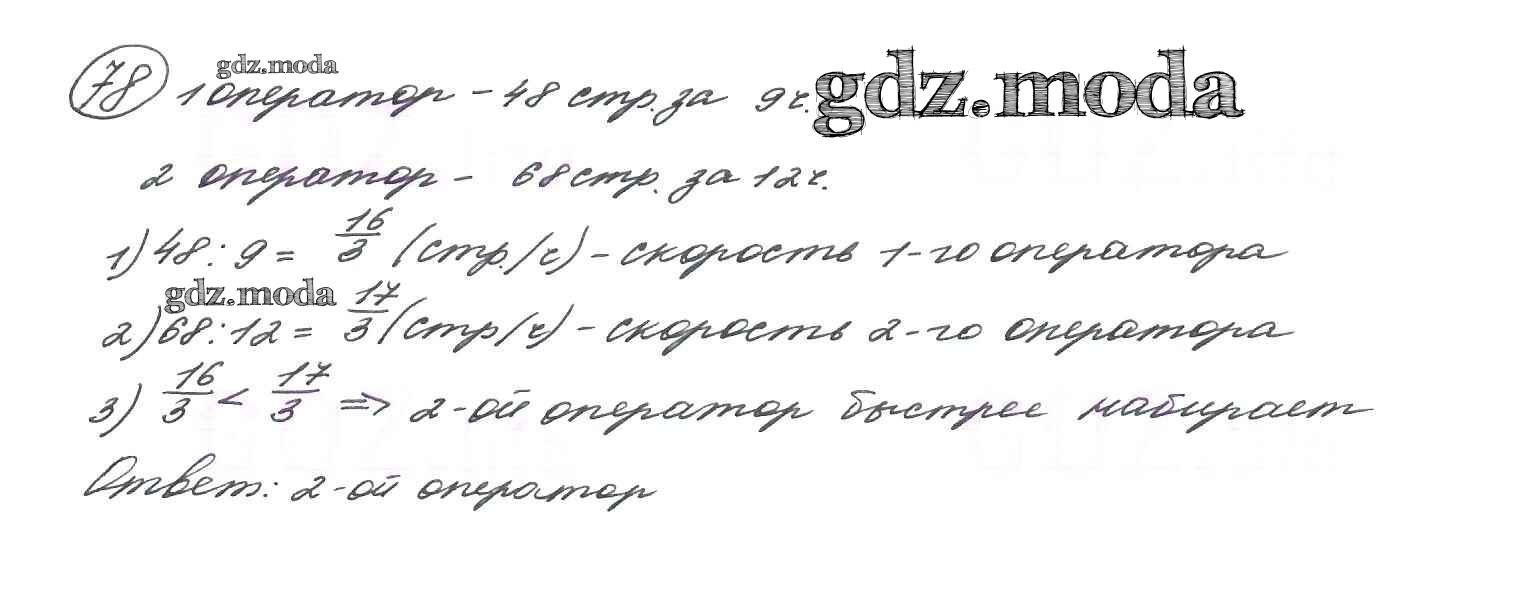 gdz.moda
78 1 оператор - 48 стр. за 9ч. gdz.moda
2 оператор - 68 стр. за 12ч.
1) 48 : 9 = 16/3 (стр./ч) - скорость 1-го оператора
gdz.moda
2) 68 : 12 = 17/3 (стр/ч) - скорость 2-го оператора
3) 16/3 < 17/3 => 2-ой оператор быстрее набирает
Ответ: 2-ой оператор